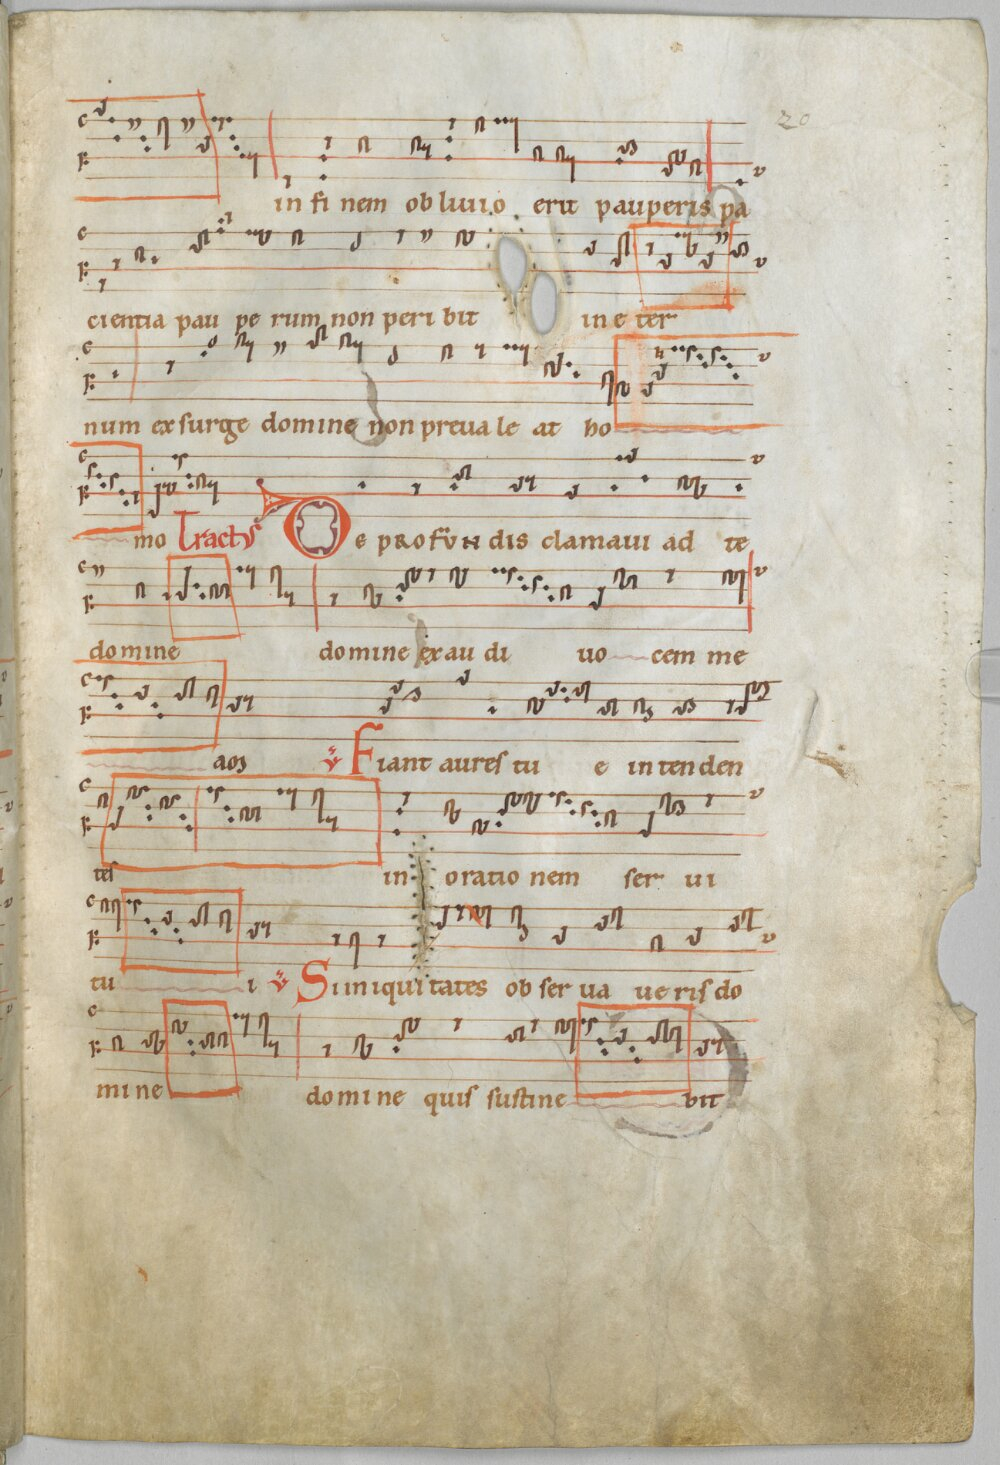 20
in fi nem ob liuio erit pauperis pa
cientia pau pe rum non peri bit in e ter
num exsurge domine non preuale at ho
mo Tractus De profundis clamaui ad te
domine domine exau di uo cem me
am Fiant aures tu e intenden
tes in oratio nem ser ui
tu i Si iniquitates ob ser ua ueris do
mine domine quis sustine bit